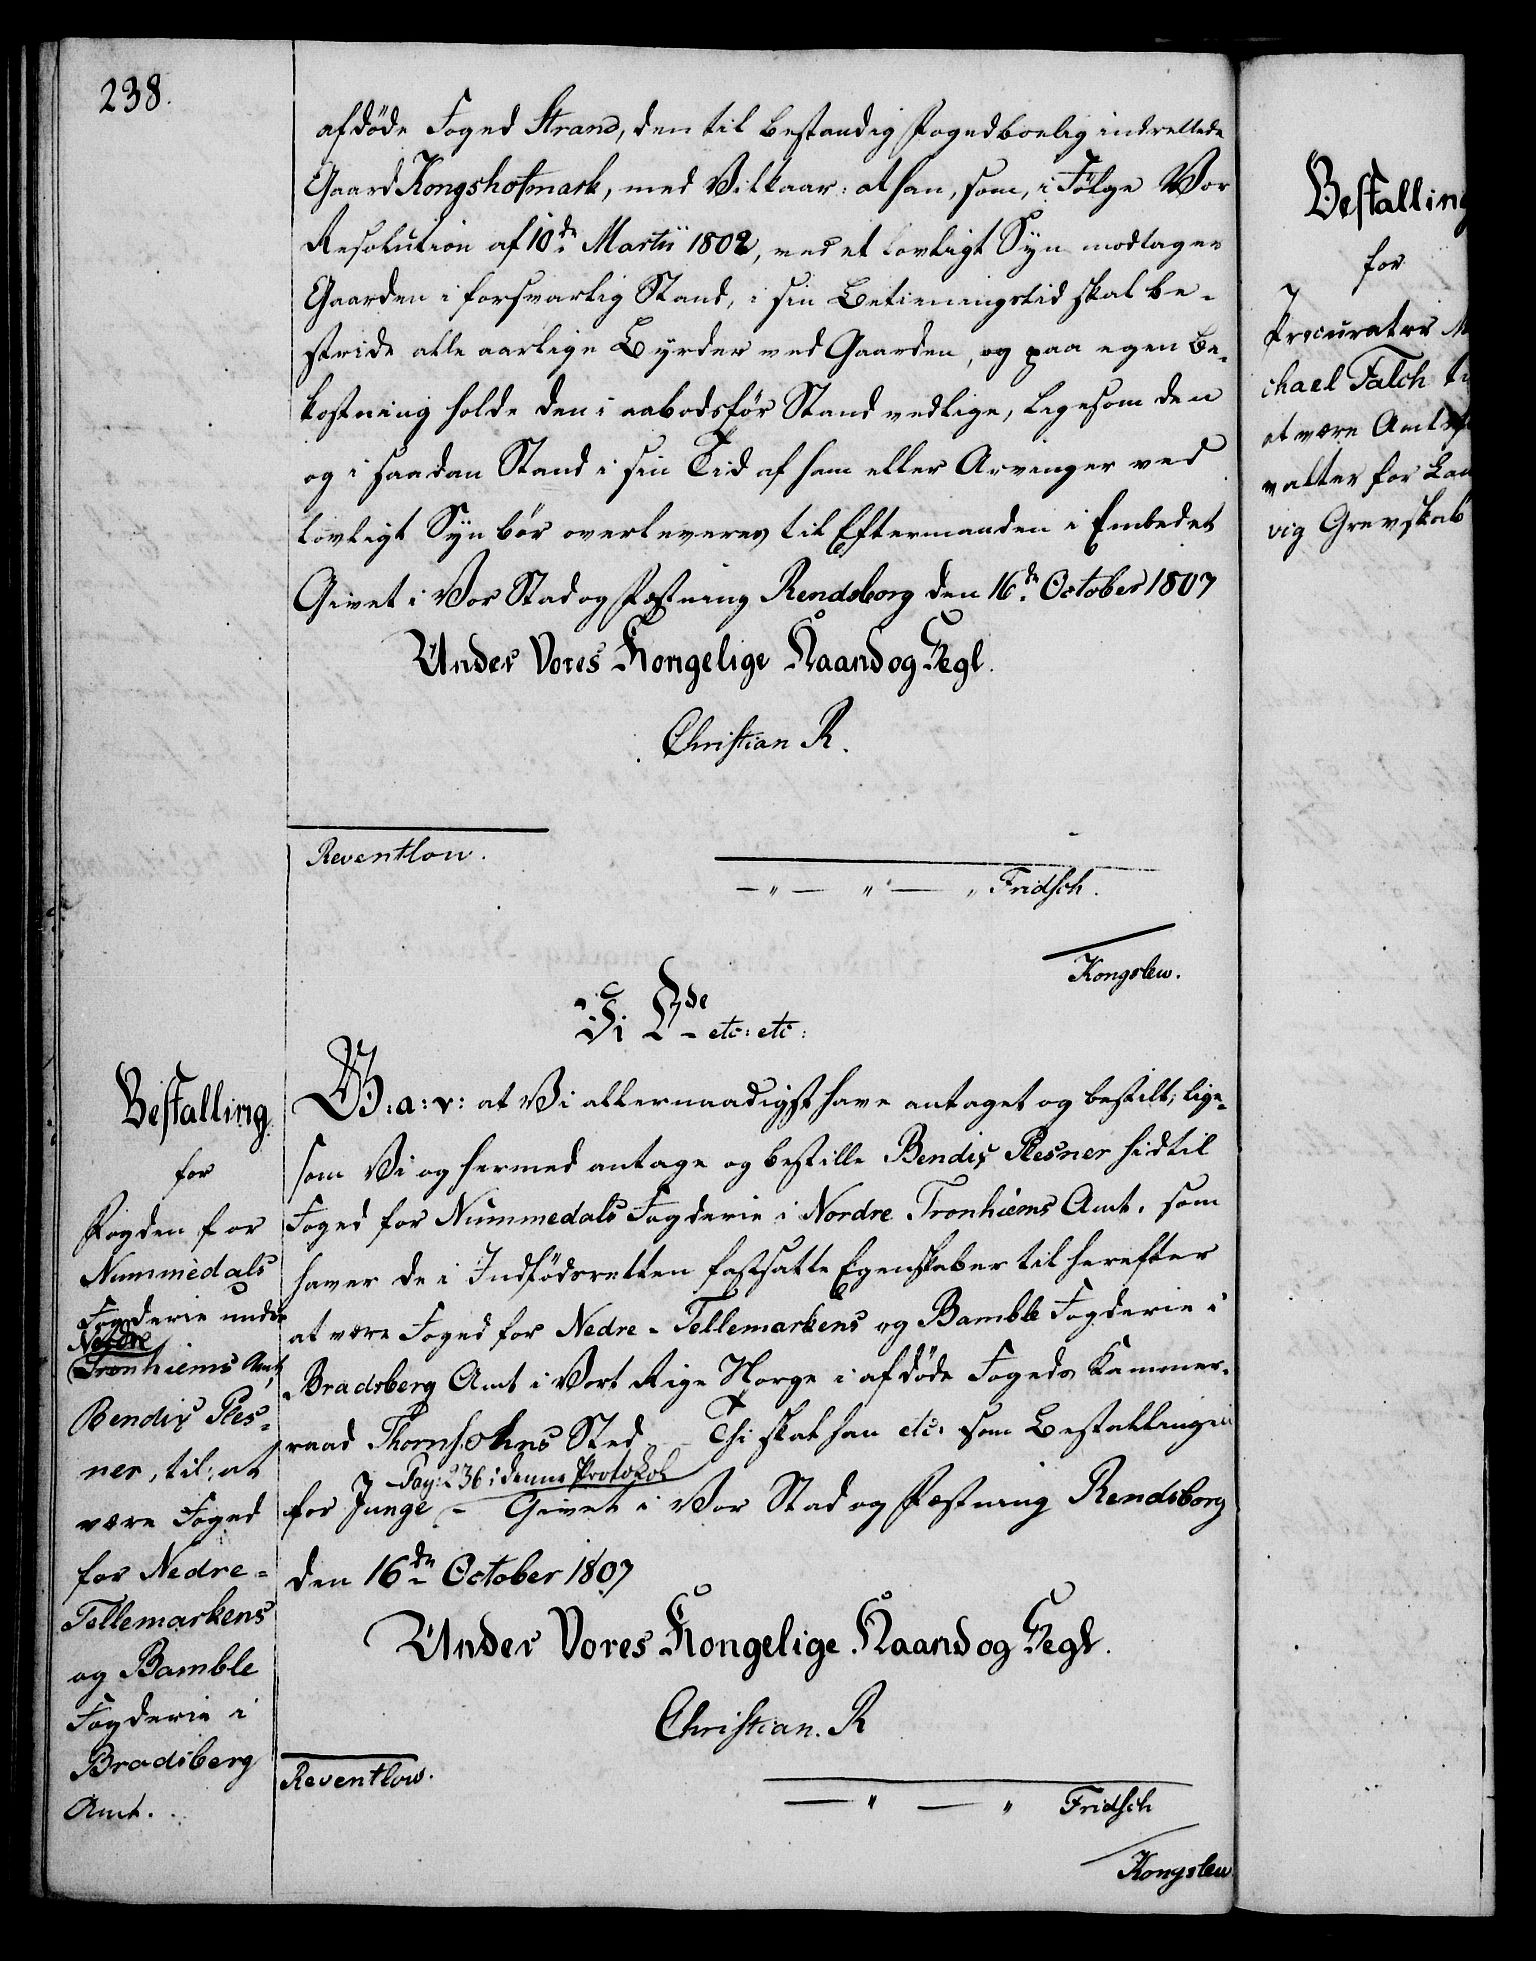 238.
afdöde Foged Strand, den til bestandig Fogedboelig indrettede
Gaard Kongshofmark, med Vilkaar: at han, som, i Fölge Vor
Resolution af 10de Martii 1802, ved et lovligt Syn modtager
Gaarden i forsvarlig Stand, i sin Betieningstid skal be-
stride alle aarlige Byrder ved Gaarden, og paa egen Be-
kostning holde den i aabodsför Stand vedlige, ligesom den
og i saadan Stand i sin Tid af ham eller Arvinger ved
lovligt Syn bör overleveres til Eftermanden i Embedet
Givet i Vor Stad og Fæstning Rendsborg den 16de October 1807
Under Vores Kongelige Haand og Segl.
Christian R.
Reventlow.
— " — " — " Fridsch.
Kongslew.
Vi C 7de etc: etc:
G: a: v: at Vi allernaadigst have antaget og bestilt; lige-
som Vi og hermed antage og bestille Bendix Plesner hidtil
Foged for Nummedals Fogderie i Nordre Tronhiems Amt, som
haver de i Indfödsretten fastsatte Egenskaber til herefter
at være Foged for Nedre-Tellemarkens og Bamble Fogderie i
Bradsberg Amt i Vort Rige Norge i afdöde Fogeds Kammer-
raad Thomsohns Sted. Thi skal han etc: som Bestallingen
Pag: 236 i denne Protokol
for Junge – Givet i Vor Stad og Fæstning Rendsborg
den 16de October 1807
Under Vores Kongelige Haand og Segl.
Christian. R
Reventlow.
— " — " Fridsch
Kongslew
Bestalling
for
Fogden for
Nummedals
Fogderie under
Nordre
Tronhiems Amt,
Bendix Ples-
ner, til: at
være Foged
for Nedre-
Tellemarkens
og Bamble
Fogderie i
Bradsberg
Amt.
Bestalling
for
Procurator M
chael Falch ti
at være Amtsf
valter for Lau
vig Grevskab